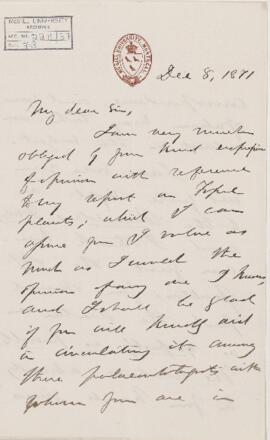 McGILL UNIVERSITY
ARCHIVES
ACC. NO.
McGILL UNIVERSITY MONTREAL
Dec 8, 1871
My dear Sir,
I am very much
obliged by your kind expression
of opinion with reference
to my report on Fossil
plants; which I can
assure you I value as
much as I would the
opinion of any one I know,
and I shall be glad
if you will kindly aid
in circulating it among
those palaeontologists with
whom you are in